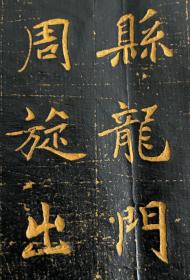 縣龍門
周旋出